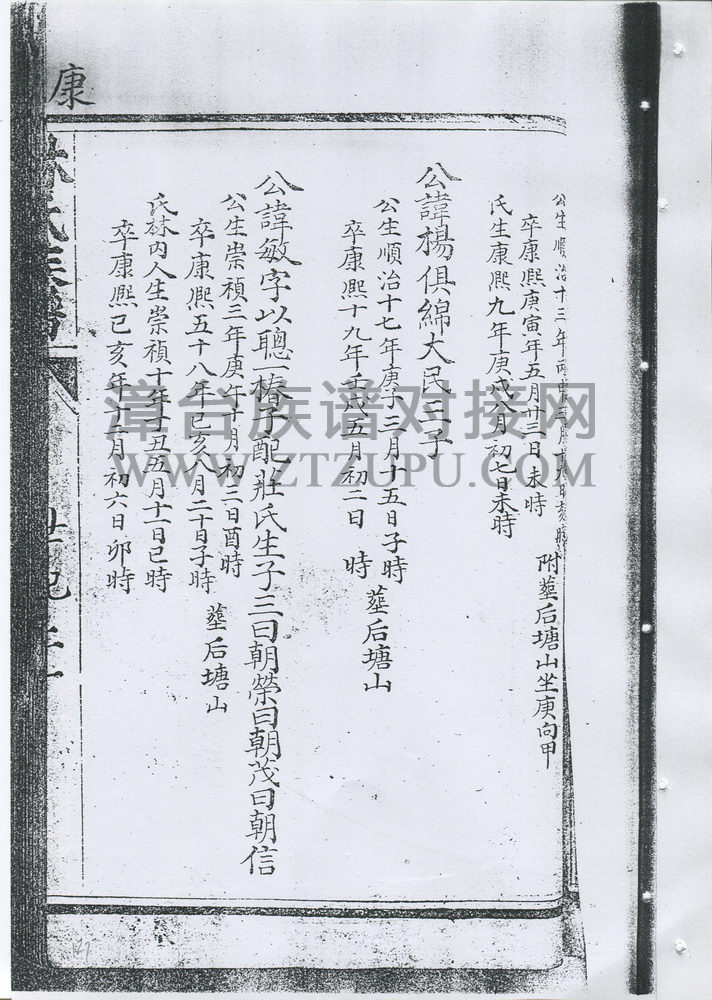 康
公生順治十三年丙申
卒康熙庚寅年五月廿三日未時
氏生康熙九年庚戌八月初七日未時
附塟后塘山坐庚向甲
公諱楊俱綿大民三子
公生順治十七年庚子三月十五日子時
卒康熙十九年壬戌五月初二日 時
塟后塘山
公諱敏字以聰一椿子配莊氏生子三曰朝榮曰朝茂曰朝信
公生崇禎三年庚午十月初三日酉時
卒康熙五十八年己亥八月二十日子時
塟后塘山
氏林内人生崇禎十年丁丑五月十一日巳時
卒康熙己亥年十二月初六日卯時
氏族譜
漳台族谱对接网
WWW.ZTZUPU.COM